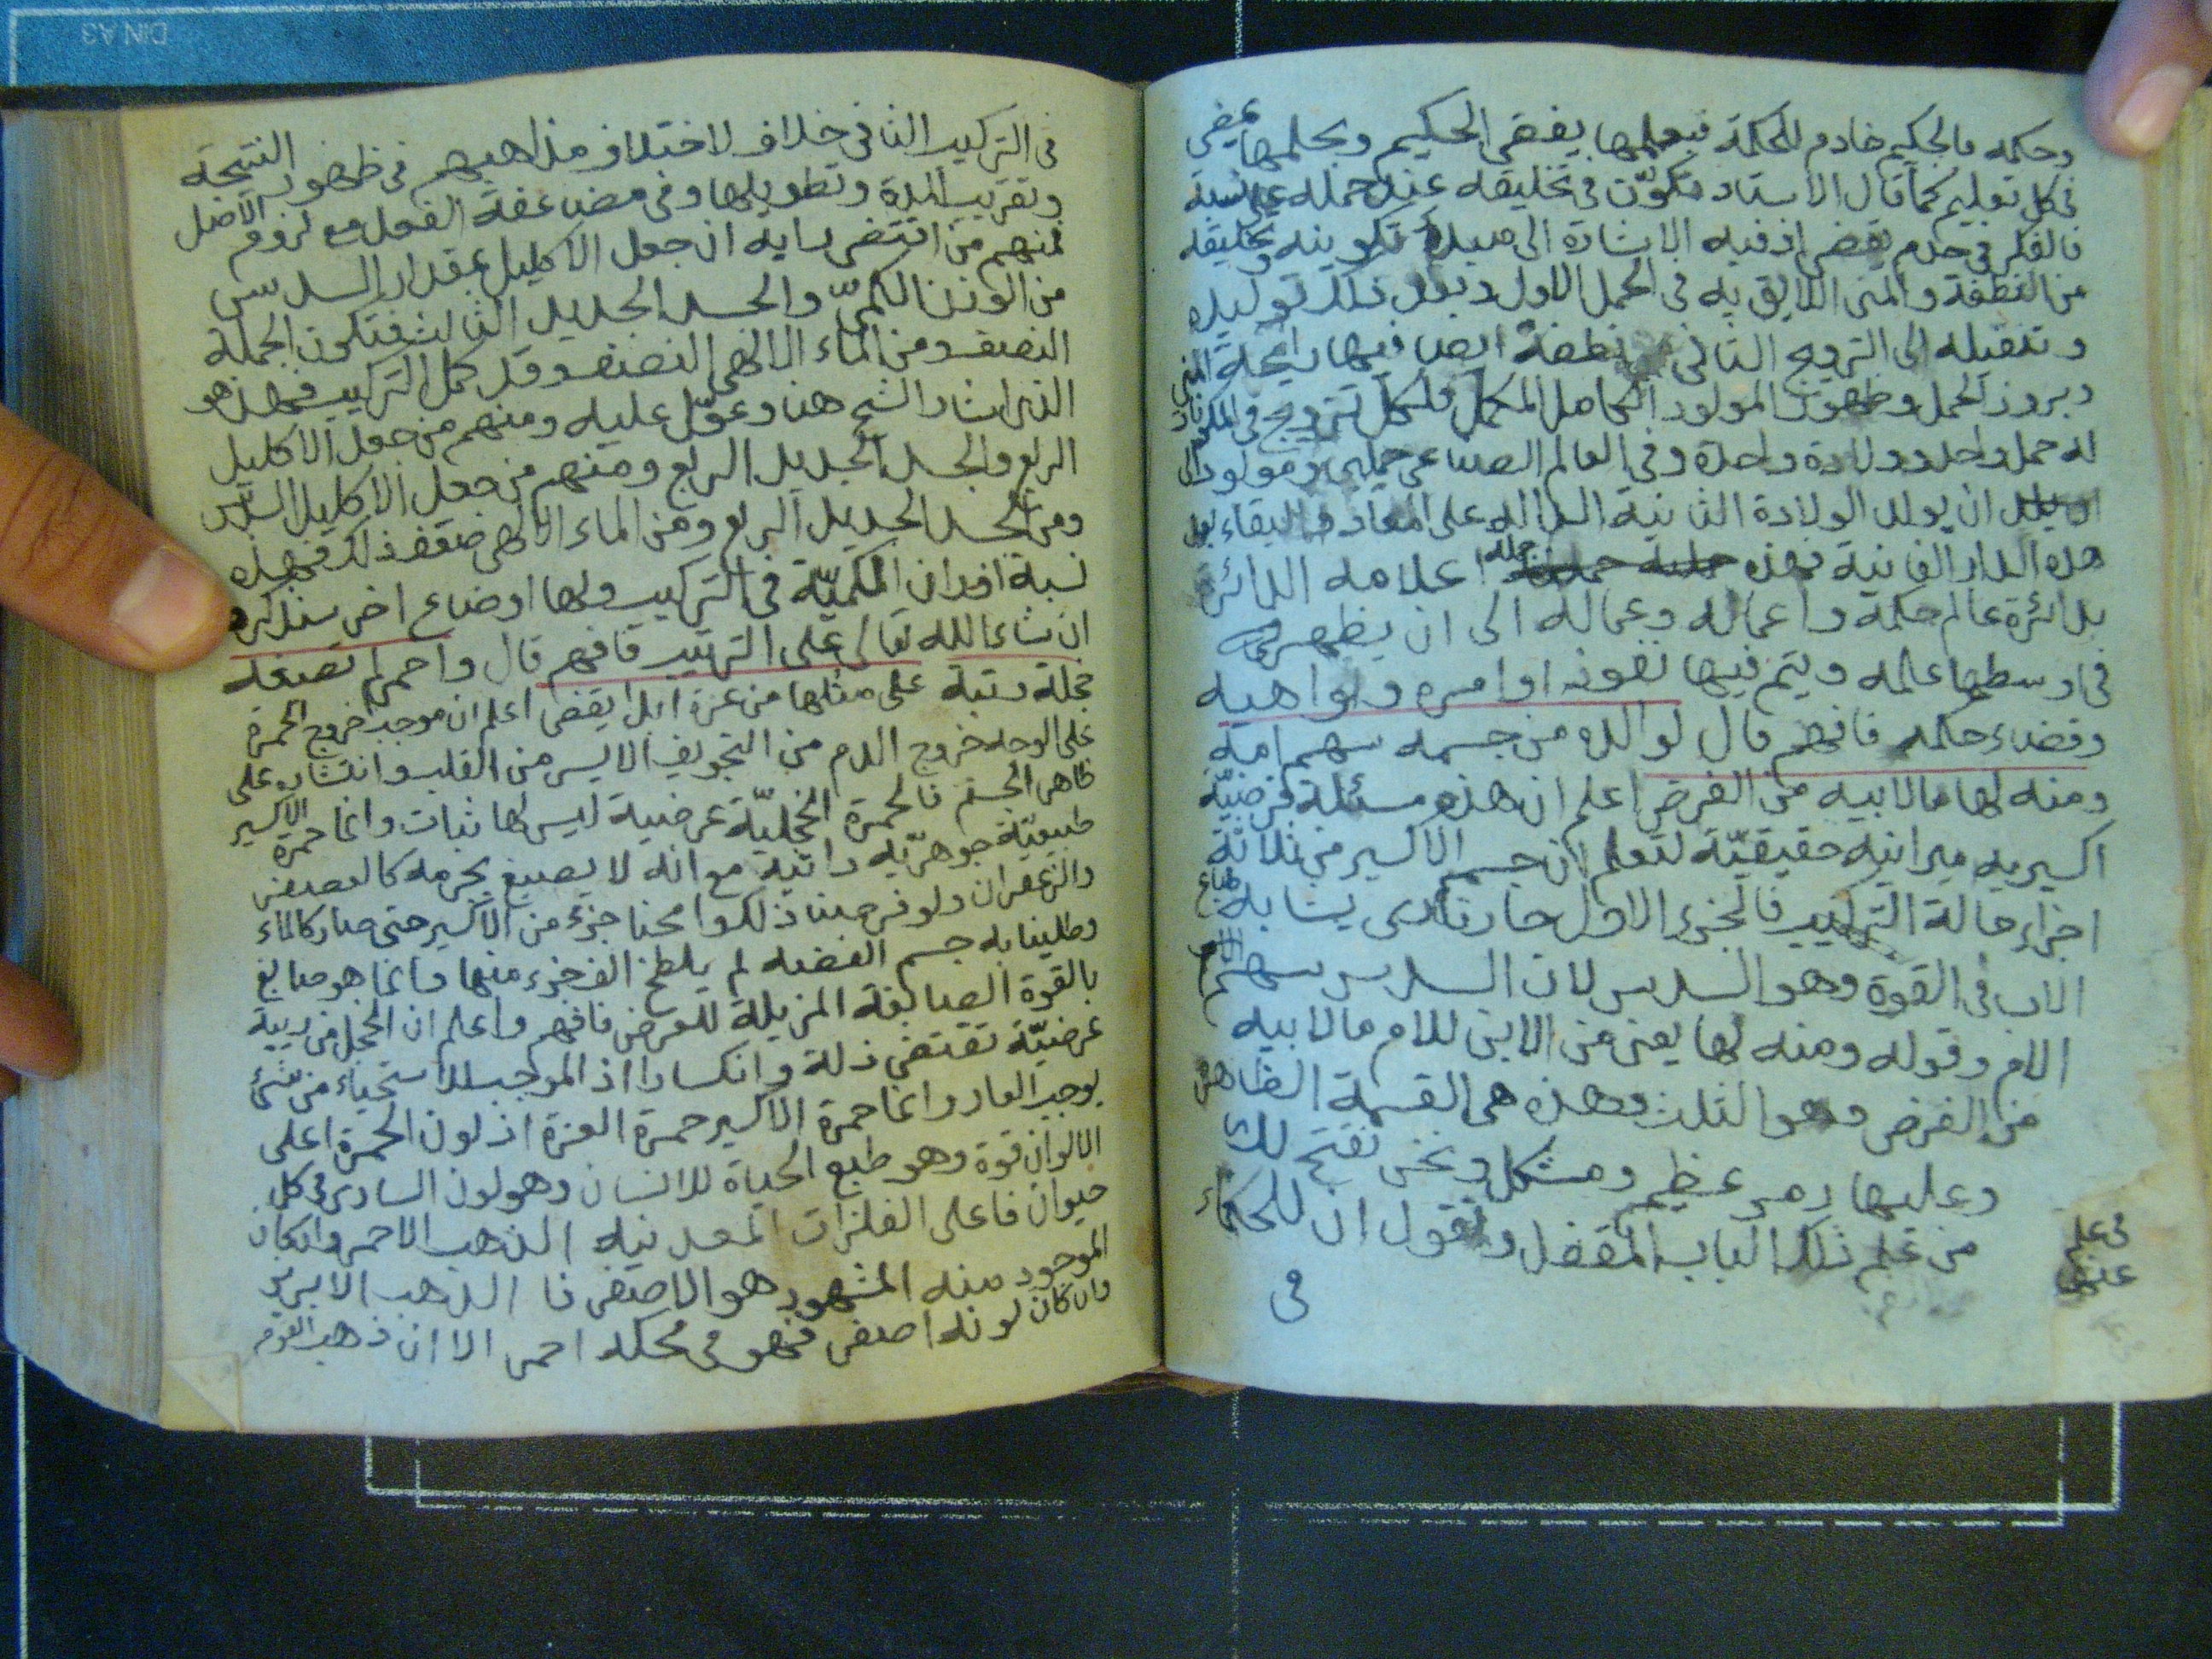 وحكمه فالحكيم خادم للحكمة فبعلمها يقضى الحكيم وبحلمها يمضى
فى كل تعليم كما قال الاستاد متكوّن فى تخليقه عند حمله على نسبة
فالفكر فى خدم يقضى اذ فيه الاشارة الى مبدا تكوينه وتخليقه
من النطفة والمنى اللايق به فى الحمل الاول وبعد ذلك توليده
وتنقيله الى التزويج الثانى نطفة ايضا فيها رايحة المنى
وبروز الحمل وظهور المولود الكامل المكمل فلكل تزويج فى
له حمل واحد وولادة واحدة وفى العالم الصناعى حملين ومولودان
ان يولد الولادة الثانية الدالة على المعاد والبقاء بعد
هذه الدار الفانية فهذه جملة اعلامه الدائرة
بدائرة عالم حكمه واعماله وعماله الى ان يظهر
فى اوسطها علمه ويتم فيها نفوذ اوامره ونواهيه
وقضاء حكمه فافهم قال لوالده من جسمه سهم امه
ومنه لها ما لابيه من الفرض اعلم ان هذه مسئلة فرضيّة
اكسيريه ميراثيه حقيقيّة لتعلم ان جسم الاكسير من ثلاثة
اجزاء حالة التركيب فالجزء الاول حار نارى يشابه طباع
الاب فى القوة وهو السدس لان السدس سهم
الام وقوله ومنه لها يعنى من الابن للام ما لابيه
من الفرض وهو الثلث وهذه هى القسمة الظاهرة
وعليها رمز عظيم ومشكل ونحن نفتح لك
من علم ذلك الباب المقفل ونقول ان للحكماء
فى علم
فى
فى التركيب الثانى خلاف لاختلاف مذاهبهم فى ظهور النتيجة
وتقريب المدة وتطويلها وفى مضاعفة الفعل مع لزوم الاصل
فمنهم من اقتضى رايه ان جعل الاكليل بمقدار السدس
من الوزن الكمىّ والجسد الجديد الثالث فتكون الجملة
النصف ومن الماء الالهى النصف وقد كمل التركيب فهذا هو
الذى اشار الشيخ هنا وعوّل عليه ومنهم من جعل الاكليل
الربع والجسد الجديد الربع ومنهم من جعل الاكليل السدس
ومن الجسد الجديد الربع ومن الماء الالهى ضعف ذلك فهذه
نسبة اوزان الحكميّة فى التركيب ولها اوضاع اخر سنذكره
ان شاء الله تعالى على الترتيب فافهم قال واحمرا تصبغه
خجلة رتبة على مثلها من عزة ابدا يقضى اعلم ان موجب خروج الحمرة
على الوجه خروج الدم من التجويف الايسر من القلب وانتشاره على
ظاهر الجسم فالحمرة الخجليّة عرضية ليس لها ثبات وانما حمرة الاكسير
طبيعيّة جوهريّه ذاتية مع انه لا يصبغ بجرمه كالعصفر
والزعفران ولو فرضنا ذلك وامحنا جزء من الاكسير حتى صار كالماء
وطلينا به جسم الفضه لم يلطخ الف جزء منها وانما هو صابغ
بالقوة الصابغة المزيلة للعرض فافهم واعلم ان الخجل من ريبة
عرضيّة تقتضى ذلة وانكسارا اذ الموجب للاستحياء من شئ
يوجب العار وانما حمرة الاكسير حمرة العزة اذ لون الحمرة اعلى
الالوان قوة وهو طبع الحياة للانسان وهو لون السارى فى كل
حيوان فاعلى الفلزات المعدنيه الذهب الاحمر وان كان
الموجود منه المشهود هو الاصفر فا الذهب الابريز
وان كان لونه اصفر فهو فى محكه احمر الا ان ذهب القوم